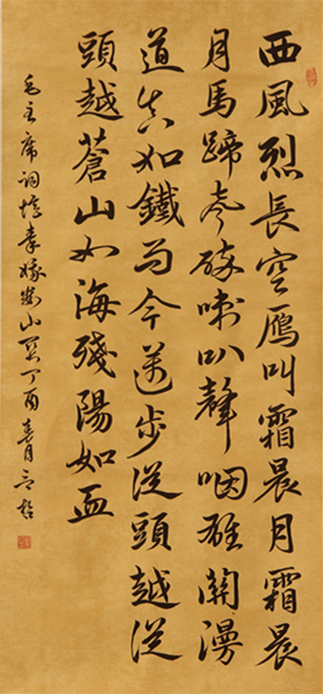 西風烈長空鴈叫霜晨月霜晨
月馬蹄聲碎喇叭聲咽雄關漫
道真如鐵而今邁步從頭越從
頭越蒼山如海殘陽如血
毛主席詞憶秦娥婁山關丁酉春月